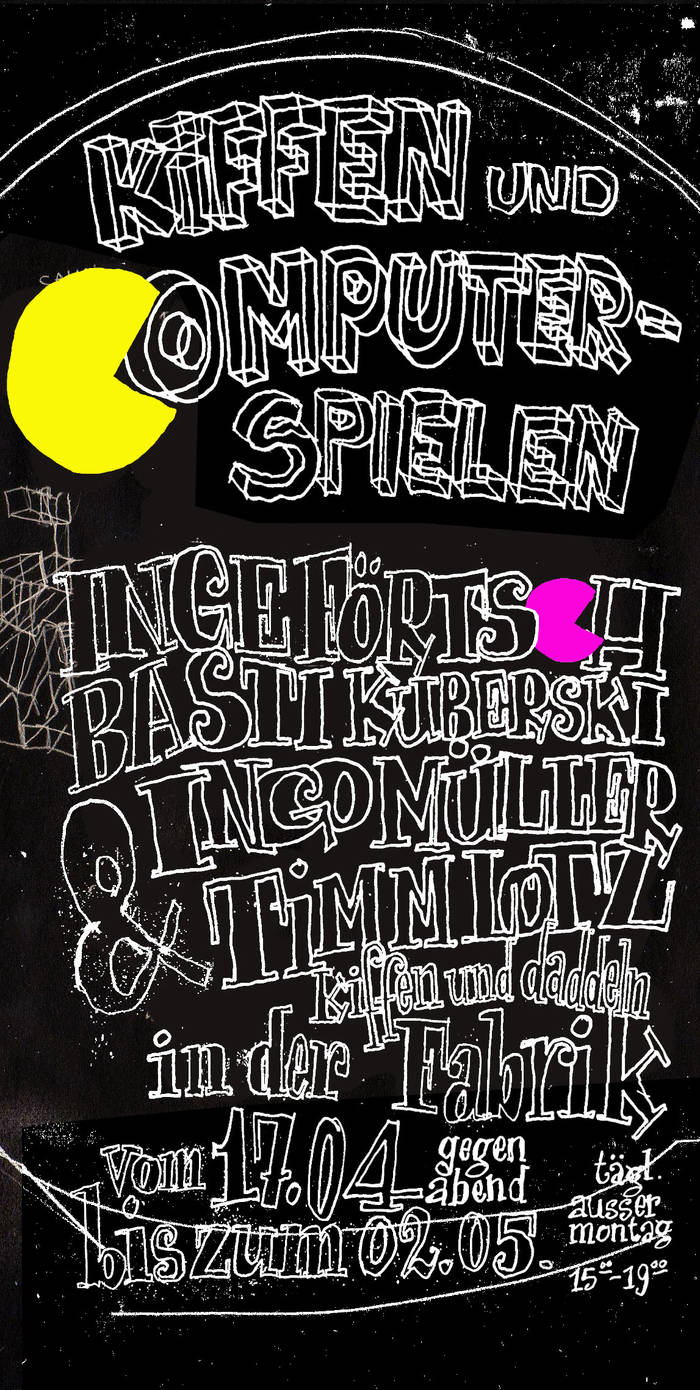 KiFFEN UND
COMPUTER-
SPIELEN
INGE FÖRTSCH
BASTI KUBERSKI
INGO MÜLLER
& TiMM LOTZ
kiffen und daddeln
in der Fabrik
vom 17.04 gegen abend
bis zum 02.05.
tägl.
ausser
montag
15°°-19°°